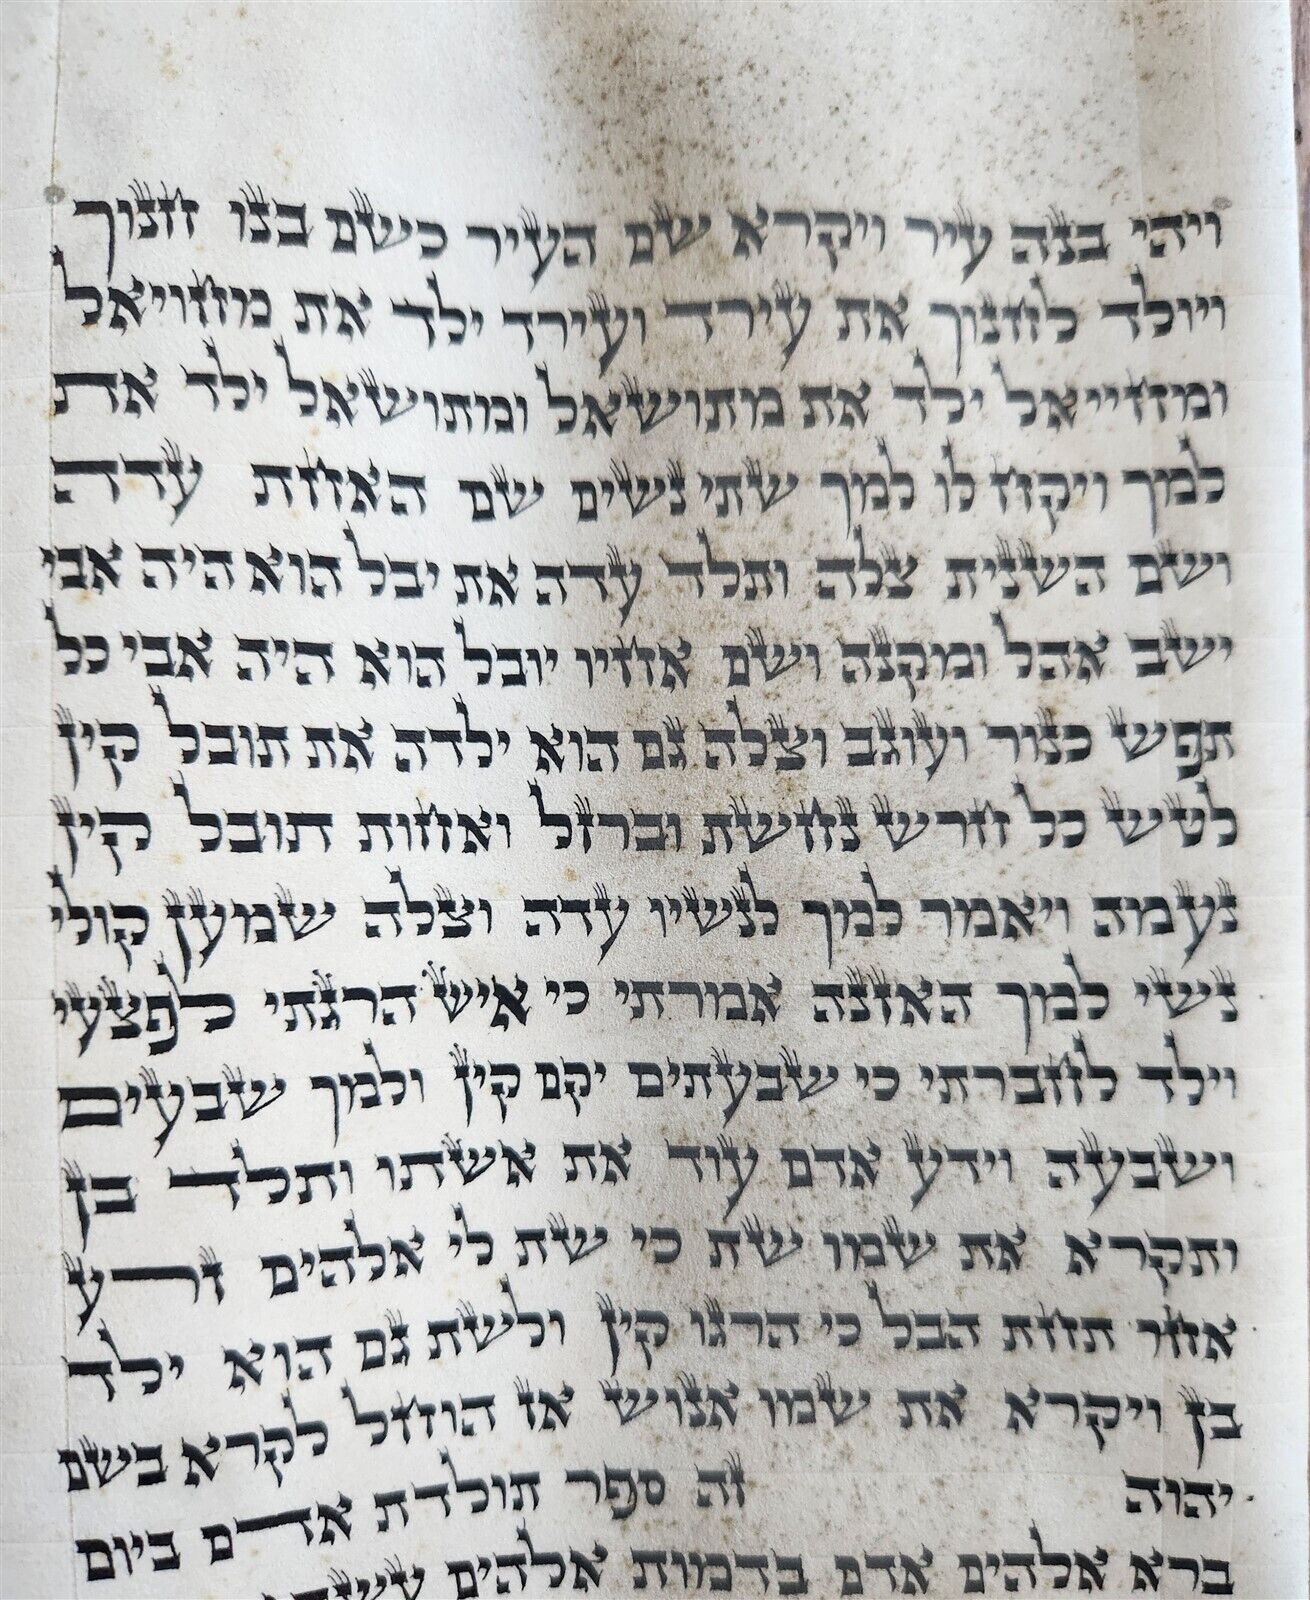 ויהי בנה עיר ויקרא שם העיר כשם בנו חנוך
ויולד לחנוך את עירד ועירד ילד את מחויאל
ומחייאל ילד את מתושאל ומתושאל ילד את
למך ויקח לו למך שתי נשים שם האחת עדה
ושם השנית צלה ותלד עדה את יבל הוא היה אבי
ישב אהל ומקנה ושם אחיו יובל הוא היה אבי כל
תפש כנור ועוגב וצלה גם הוא ילדה את תובל קין
לטש כל חרש נחשת וברזל ואחות תובל קין
נעמה ויאמר למך לנשיו עדה וצלה שמען קולי
נשי למך האזנה אמרתי כי איש הרגתי לפצעי
וילד לחברתי כי שבעתים יקם קין ולמך שבעים
ושבעה וידע אדם עוד את אשתו ותלד בן
ותקרא את שמו שת כי שת לי אלהים זרע
אחר תחת הבל כי הרגו קין ולשת גם הוא ילד
בן ויקרא את שמו אנוש אז הוחל לקרא בשם
יהוה זה ספר תולדת אדם ביום
ברא אלהים אדם בדמות אלהים עשה